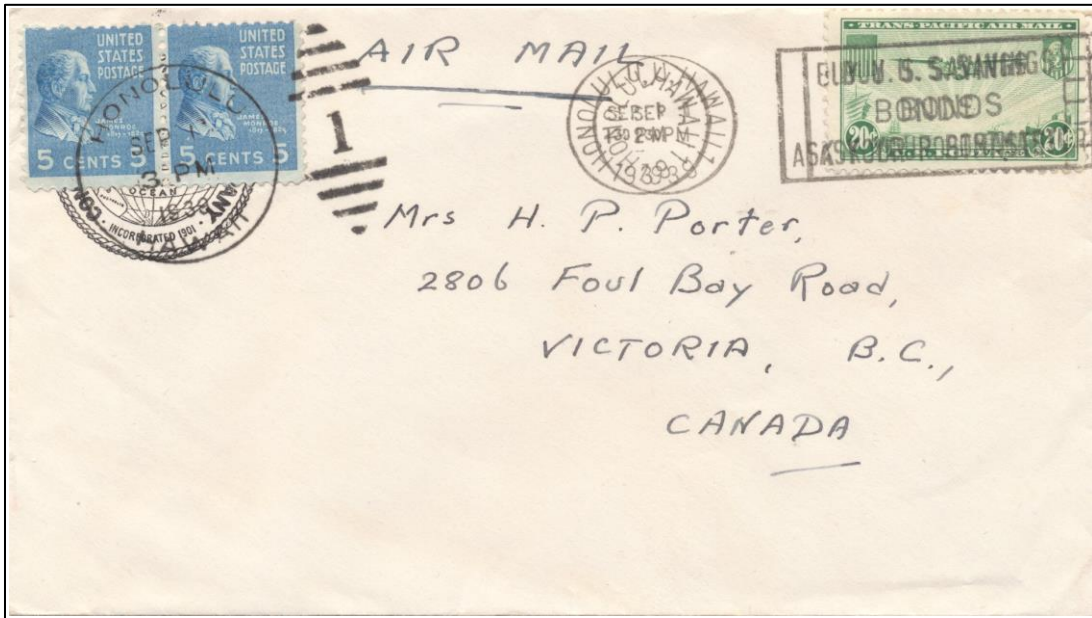 UNITED STATES POSTAGE
JAMES MONROE
5 CENTS 5
UNITED STATES POSTAGE
JAMES MONROE
5 CENTS 5
HONOLULU
SEP 1
3 PM
HAWAII
OCEAN
INCORPORATED 1901
1
AIR MAIL
HONOLULU, HAWAII
SEP 1
PM
TRANS-PACIFIC AIR MAIL
20¢ 20¢
BUY U. S. SAVINGS
BONDS
ASK YOUR POSTMASTER
Mrs H. P. Porter,
2806 Foul Bay Road,
VICTORIA, B.C.,
CANADA